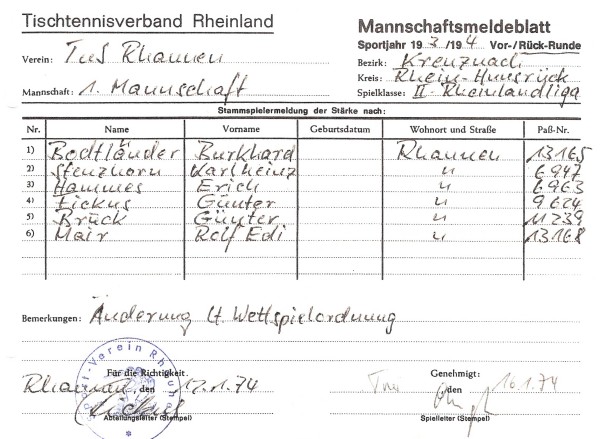 Tischtennisverband Rheinland
Mannschaftsmeldeblatt
Sportjahr 1973/1974 Vor-/Rück-Runde
Verein: TuS Rhaunen
Bezirk: Kreuznach
Kreis: Rhein-Hunsrück
Mannschaft: 1. Mannschaft
Spielklasse: II. Rheinlandliga
Stammspielermeldung der Stärke nach:
Nr. Name Vorname Geburtsdatum Wohnort und Straße Paß-Nr.
1) Bodtländer Burkhard Rhaunen 13165
2) Stenzhorn Karlheinz " 6947
3) Hammes Erich " 6963
4) Fickus Günter " 9624
5) Brück Günter " 11239
6) Mair Rolf Edi " 13168
Bemerkungen: Änderung lt. Wettspielordnung
Für die Richtigkeit.
Genehmigt:
Rhaunen, den 12.1.74
den 16.1.74
Abteilungsleiter (Stempel)
Spielleiter (Stempel)